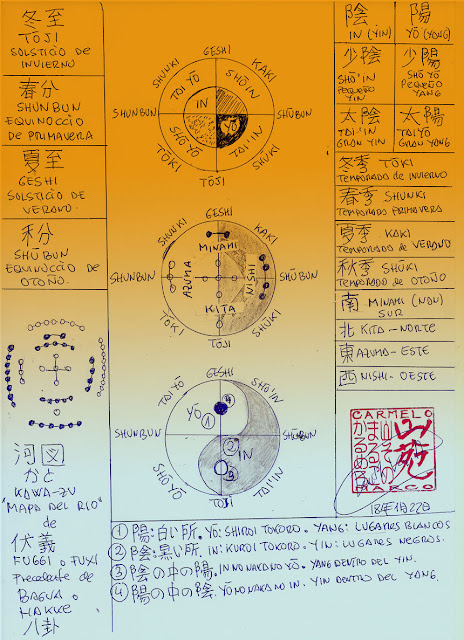 冬至
TŌJI
SOLSTICIO DE
INVIERNO
春分
SHUNBUN
EQUINOCCIO
DE PRIMAVERA
夏至
GESHI
SOLSTICIO DE
VERANO.
秋分
SHŪBUN
EQUINOCCIO DE
OTOÑO.
河図
かと
KAWA-ZU
"MAPA DEL RIO"
de
伏義
FUGGI o FUXI
Precedente de
BAGUA o
HAKKE
八卦
GESHI
SHUNKI
KAKI
TAI YŌ
SHŌ'IN
IN
SHUNBUN
SHŪBUN
YŌ
SHŌ YŌ
TAI'IN
TŌKI
SHUKI
TŌJI
GESHI
SHUNKI
KAKI
MINAMI
SHUNBUN
AZUMA
NISHI
SHŪBUN
KITA
TŌKI
SHŪKI
TŌJI
GESHI
TAI YŌ
SHŌ'IN
YŌ
①
④
SHUNBUN
SHŪBUN
②
IN
③
SHŌ YŌ
TAI'IN
TŌJI
陰
IN (YIN)
陽
YŌ (YANG)
少陰
SHŌ'IN
PEQUEÑO
YIN
少陽
SHŌ YŌ
PEQUEÑO
YANG
太陰
TAI'IN
GRAN YIN
太陽
TAIYŌ
GRAN YANG
冬季 TŌKI
TEMPORADO DE INVIERNO
春季 SHUNKI
TEMPORADA PRIMAVERA
夏季 KAKI
TEMPORADO DE VERANO
秋季 SHŪKI
TEMPORADO DE OTOÑO
南 MINAMI (NAN)
SUR
北 KITA - NORTE
東 AZUMA - ESTE
西 NISHI - OESTE
CARMELO
山苑
MARCO
18年1月22日
① 陽:白い所. YŌ: SHIROI TOKORO. YANG: LUGARES BLANCOS
② 陰:黒い所. IN: KUROI TOKORO. YIN: LUGARES NEGROS.
③ 陰の中の陽. IN NO NAKA NO YŌ. YANG DENTRO DEL YIN.
④ 陽の中の陰. YŌ NO NAKA NO IN. YIN DENTRO DEL YANG.